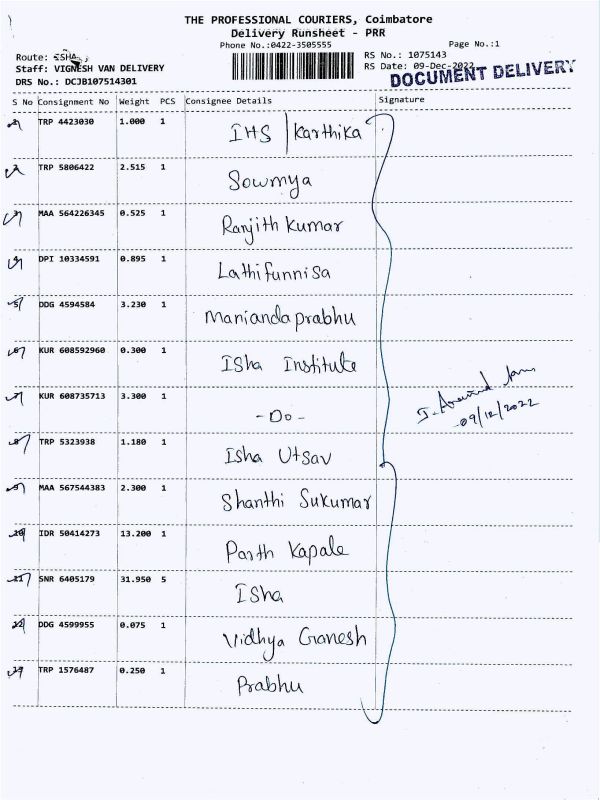 THE PROFESSIONAL COURIERS, Coimbatore
Delivery Runsheet - PRR
Phone No.:0422-3505555
Page No.:1
Route: ISHA
RS No.: 1075143
Staff: VIGNESH VAN DELIVERY
RS Date: 09-Dec-2022
DRS No.: DCJB107514301
DOCUMENT DELIVERY
S No Consignment No Weight PCS Consignee Details Signature
1 TRP 4423030 1.000 1 IHS | Karthika
2 TRP 5806422 2.515 1 Sowmya
3 MAA 564226345 0.525 1 Ranjith Kumar
4 DPI 10334591 0.895 1 Lathifunnisa
5 DDG 4594584 3.230 1 Manianda prabhu
6 KUR 608592960 0.300 1 Isha Institute
7 KUR 608735713 3.300 1 - Do -
09/12/2022
8 TRP 5323938 1.180 1 Isha Utsav
9 MAA 567544383 2.300 1 Shanthi Sukumar
10 IDR 50414273 13.200 1 Parth Kapale
11 SNR 6405179 31.950 5 Isha
12 DDG 4599955 0.075 1 Vidhya Ganesh
13 TRP 1576487 0.250 1 Prabhu